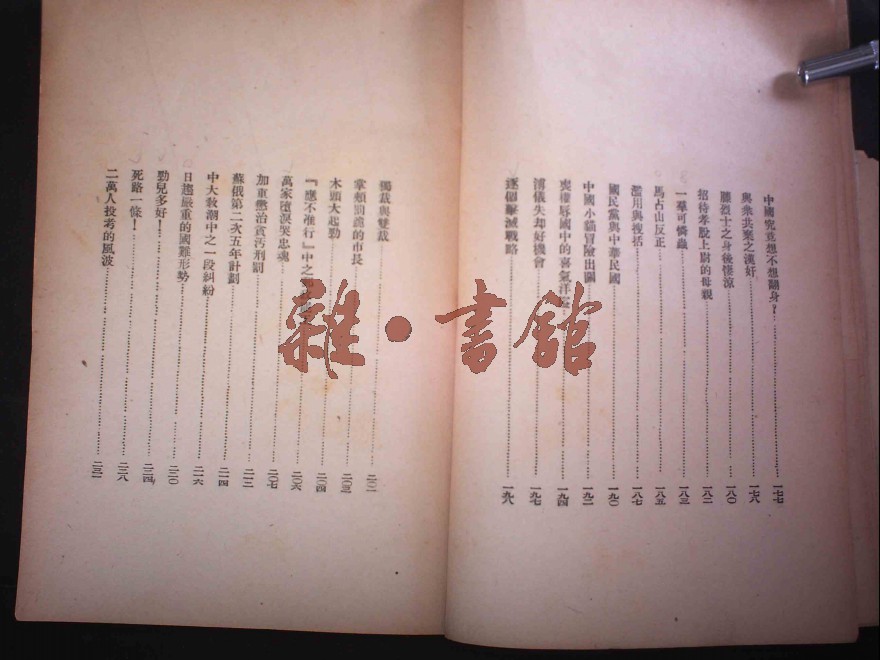 中國究竟想不想翻身？……一七七
與衆共棄之漢奸……一七八
滕烈士之身後悽涼……一八〇
招待孝殷上尉的母親……一八二
一羣可憐蟲……一八三
馬占山反正……一八五
濫用與搜括……一八七
國民黨與中華民國……一九〇
中國小貓冒險出關……一九二
喪權辱國中的喜氣洋……一九四
溥儀失却好機會……一九七
逐個擊滅戰略……一九八
獨裁與雙裁……二〇一
掌頰罰跪的市長……二〇三
木頭大起勁……二〇四
『應不准行』中之……二〇六
萬家墮淚哭忠魂
加重懲治貪汚刑罰……二〇七
蘇俄第二次五年計劃……二一二
中大敎潮中之一段糾紛……二一四
日趨嚴重的國難形勢……二一六
勁兒多好！……二二〇
死路一條！……二二四
二萬人投考的風波……二二八
二三一
雜·書館